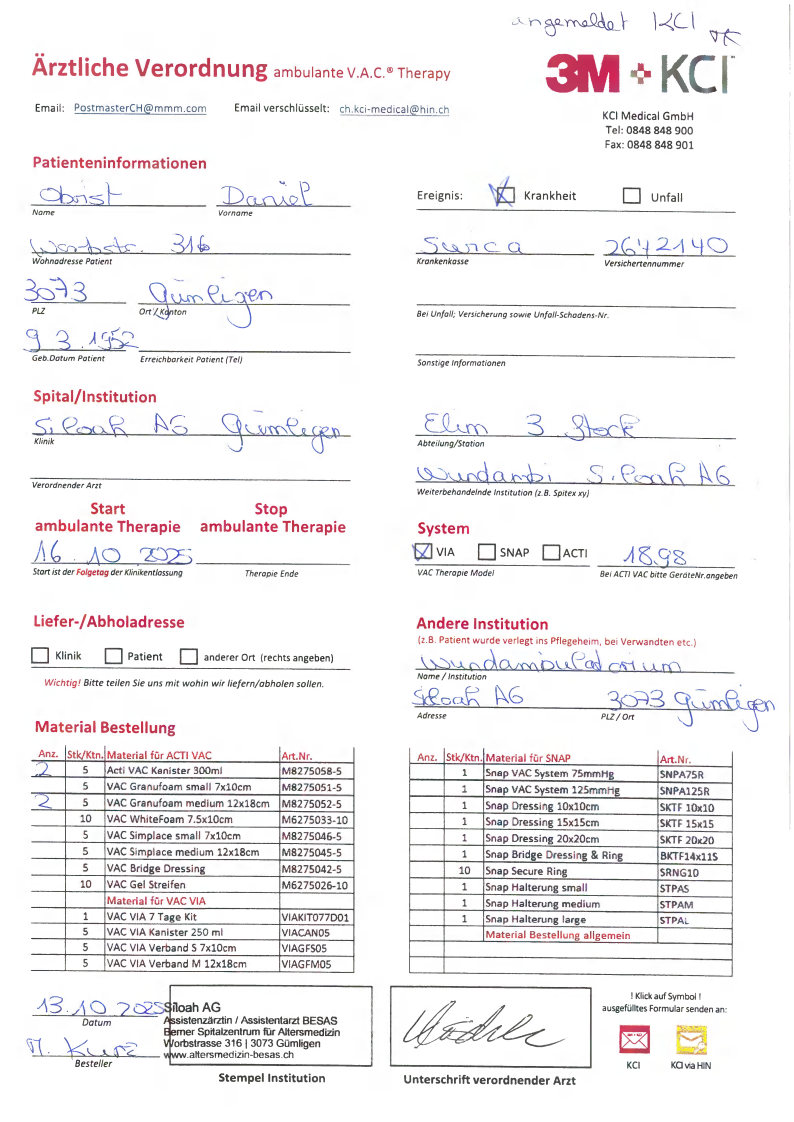 angemeldet KCI
Ärztliche Verordnung ambulante V.A.C.® Therapy
3M + KCI
Email: PostmasterCH@mmm.com Email verschlüsselt: ch.kci-medical@hin.ch
KCI Medical GmbH
Tel: 0848 848 900
Fax: 0848 848 901
Patienteninformationen
Obrist Daniel
Name Vorname
Ereignis: Krankheit Unfall
Worbstr. 316
Wohnadresse Patient
Surca 2642140
Krankenkasse Versichertennummer
3073 Gümligen
PLZ Ort / Kanton
Bei Unfall; Versicherung sowie Unfall-Schadens-Nr.
9 3. 1952
Geb.Datum Patient Erreichbarkeit Patient (Tel)
Sonstige Informationen
Spital/Institution
Siloah AG Gümligen
Klinik
Elim 3 Stock
Abteilung/Station
Verordnender Arzt
Wundambi Siloah AG
Weiterbehandelnde Institution (z.B. Spitex xy)
Start Stop
ambulante Therapie ambulante Therapie
16. 10 2025
Start ist der Folgetag der Klinikentlassung Therapie Ende
System
VIA SNAP ACTI 1898
VAC Therapie Model Bei ACTI VAC bitte GeräteNr.angeben
Liefer-/Abholadresse
Klinik Patient anderer Ort (rechts angeben)
Wichtig! Bitte teilen Sie uns mit wohin wir liefern/abholen sollen.
Andere Institution
(z.B. Patient wurde verlegt ins Pflegeheim, bei Verwandten etc.)
Wundambulatorium
Name / Institution
Siloah AG 3073 Gümligen
Adresse PLZ / Ort
Material Bestellung
Anz. Stk/Ktn. Material für ACTI VAC Art.Nr.
2 5 Acti VAC Kanister 300ml M8275058-5
5 VAC Granufoam small 7x10cm M8275051-5
2 5 VAC Granufoam medium 12x18cm M8275052-5
10 VAC WhiteFoam 7.5x10cm M6275033-10
5 VAC Simplace small 7x10cm M8275046-5
5 VAC Simplace medium 12x18cm M8275045-5
5 VAC Bridge Dressing M8275042-5
10 VAC Gel Streifen M6275026-10
Material für VAC VIA
1 VAC VIA 7 Tage Kit VIAKIT077D01
5 VAC VIA Kanister 250 ml VIACAN05
5 VAC VIA Verband S 7x10cm VIAGFS05
5 VAC VIA Verband M 12x18cm VIAGFM05
Anz. Stk/Ktn. Material für SNAP Art.Nr.
1 Snap VAC System 75mmHg SNPA75R
1 Snap VAC System 125mmHg SNPA125R
1 Snap Dressing 10x10cm SKTF 10x10
1 Snap Dressing 15x15cm SKTF 15x15
1 Snap Dressing 20x20cm SKTF 20x20
1 Snap Bridge Dressing & Ring BKTF14x11S
10 Snap Secure Ring SRNG10
1 Snap Halterung small STPAS
1 Snap Halterung medium STPAM
1 Snap Halterung large STPAL
Material Bestellung allgemein
13.10.2025
Datum
M. Kurz
Besteller
Siloah AG
Assistenzärztin / Assistentarzt BESAS
Berner Spitalzentrum für Altersmedizin
Worbstrasse 316 | 3073 Gümligen
www.altersmedizin-besas.ch
Stempel Institution
Unterschrift verordnender Arzt
! Klick auf Symbol !
ausgefülltes Formular senden an:
KCI KCI via HIN